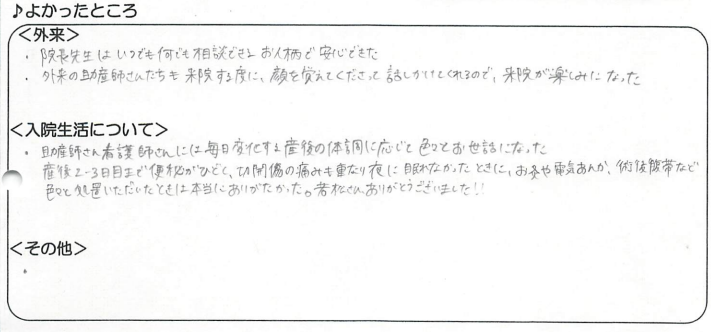 ♪よかったところ
<外来>
・院長先生はいつでも何でも相談できるお人柄で安心できた
・外来の助産師さんたちも来院する度に、顔を覚えてくださって話しかけてくれるので、来院が楽しみになった
<入院生活について>
・助産師さん看護師さんには毎日変化する産後の体調に応じて色々とお世話になった
産後2-3日目まで便秘がひどく、切開傷の痛みも重なり夜に眠れなかったときに、お灸や電気あんか、術後腹帯など
色々と処置いただいたときは本当にありがたかった。若松さんありがとうございました!!
<その他>
・